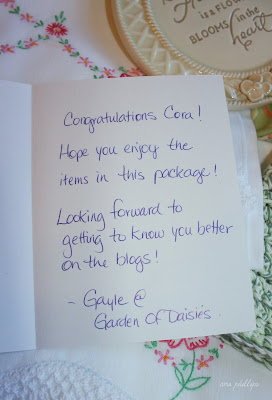 is a FLOW
BLOOMS in the
heart
Congratulations Cora!
Hope you enjoy the
items in this package!
Looking forward to
getting to know you better
on the blogs!
- Gayle @
Garden Of Daisies.